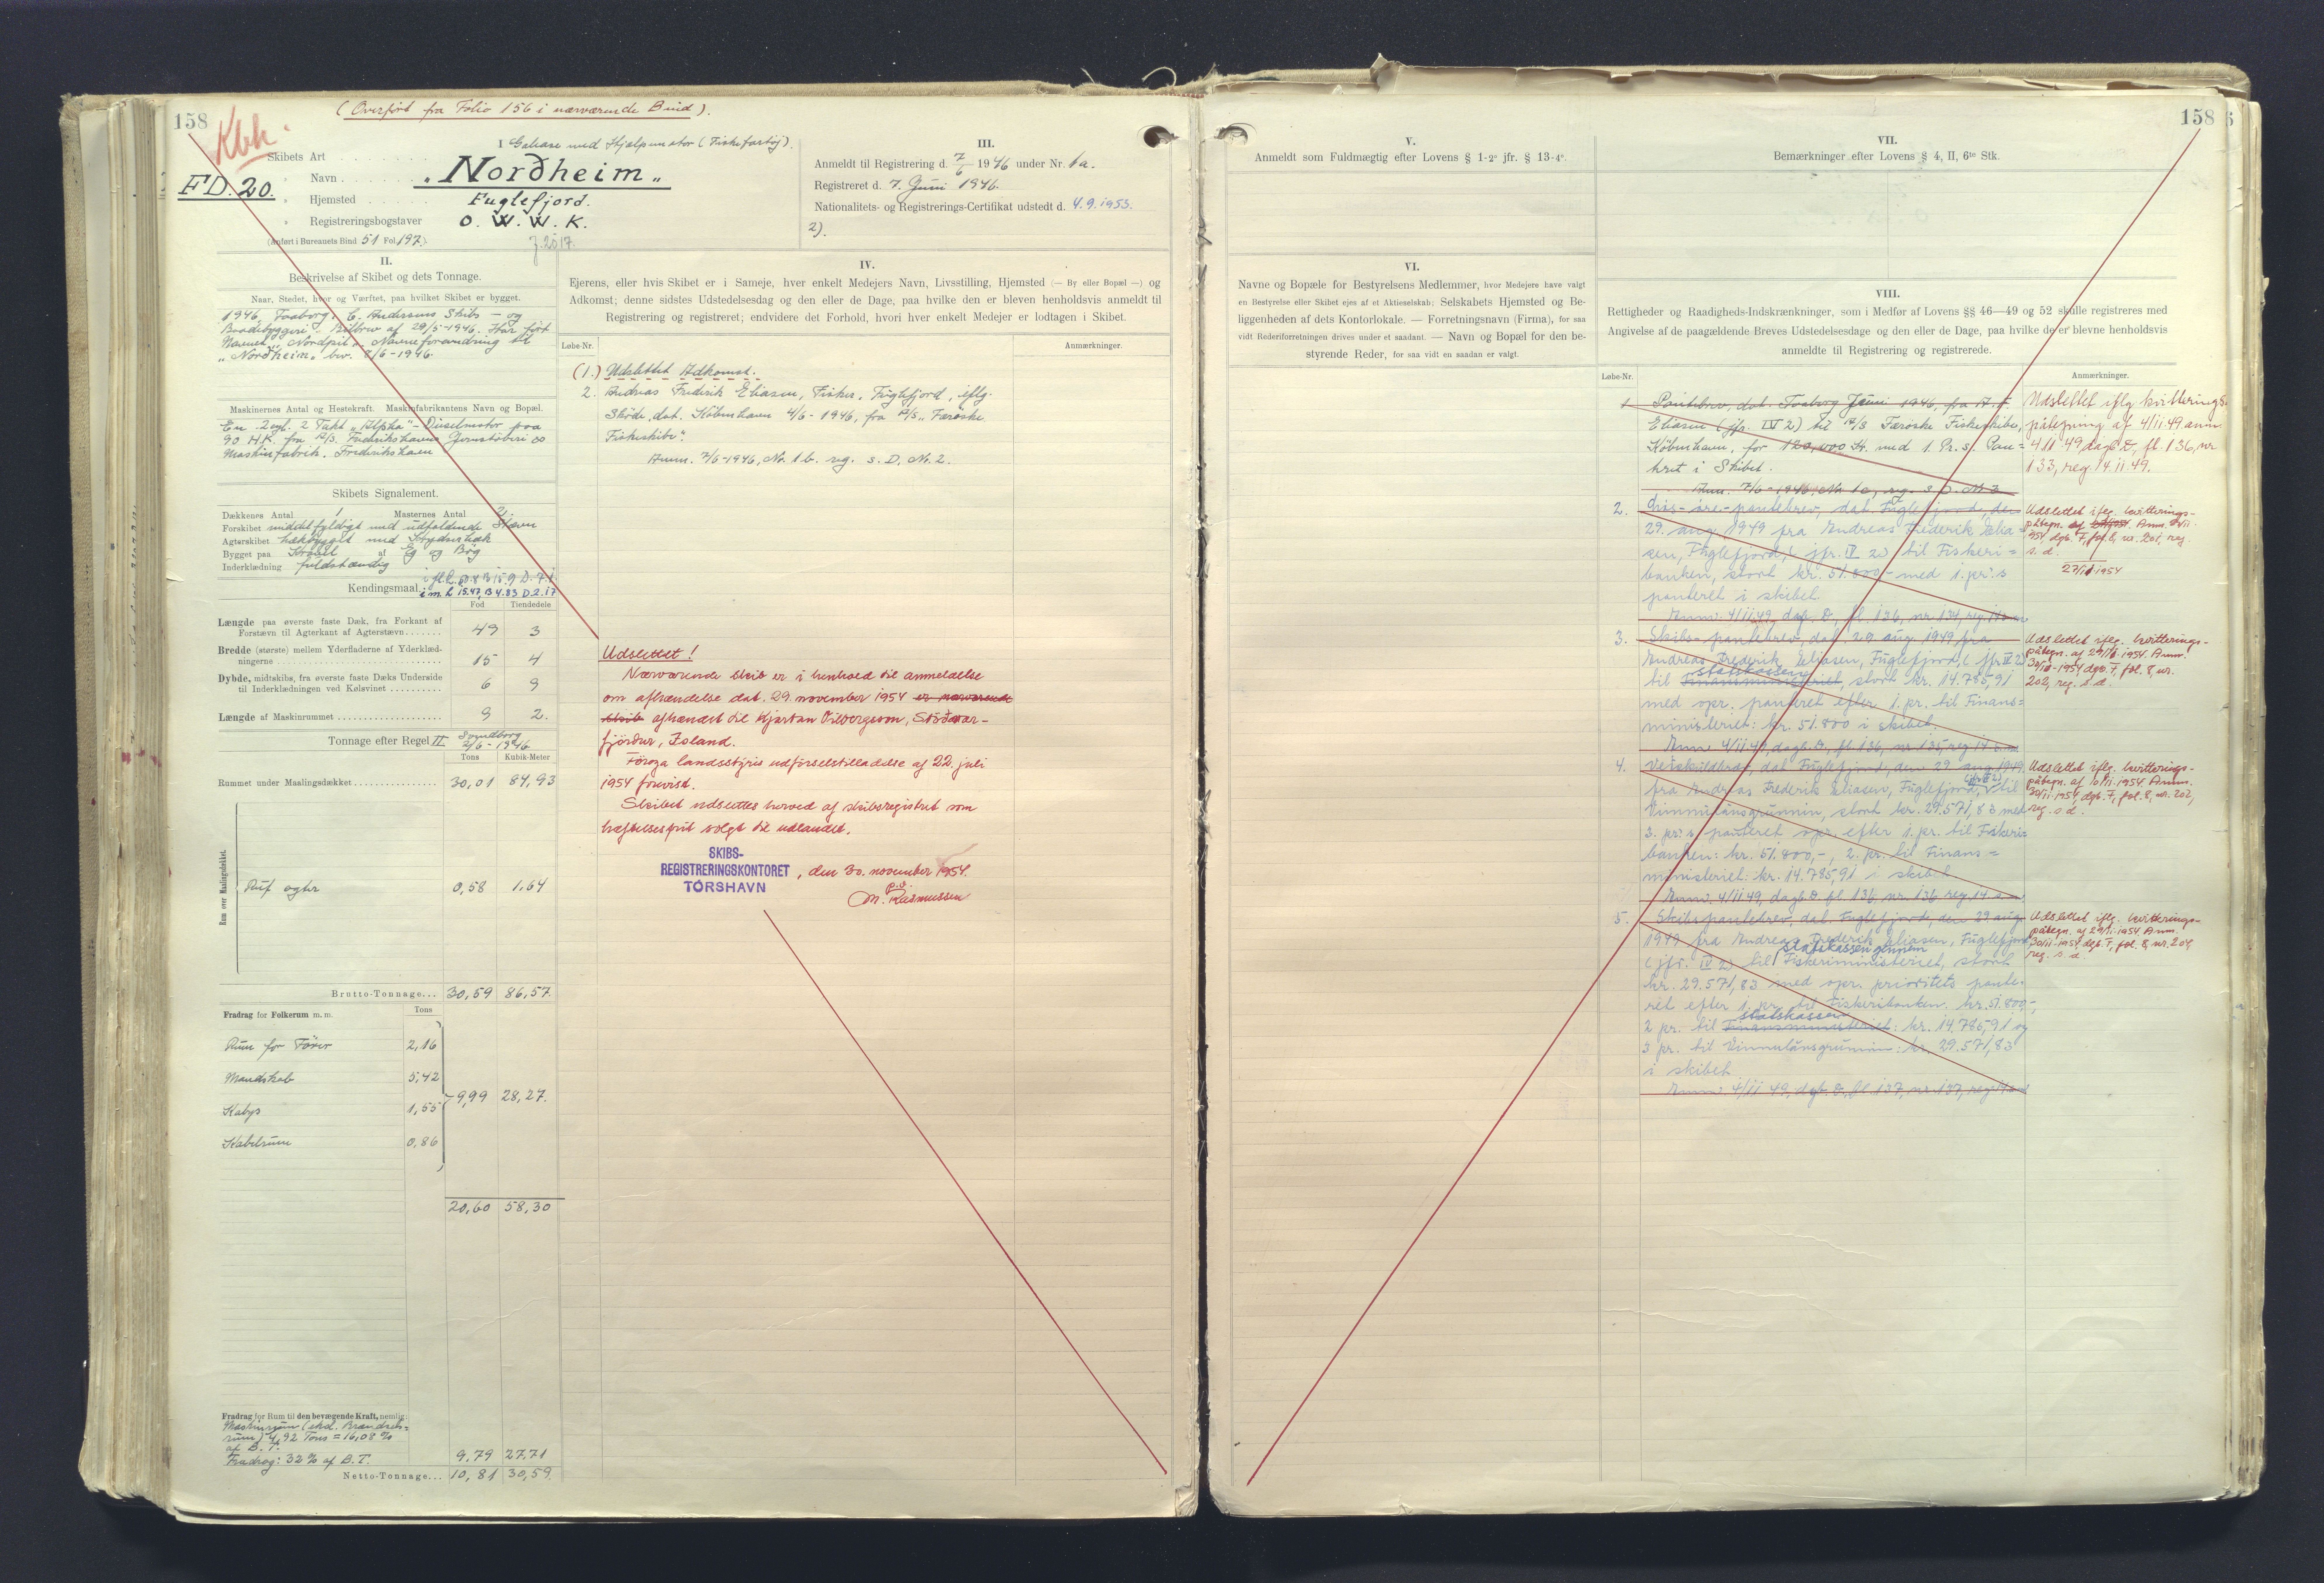 158
Kbh.
(Overført fra Folio 156 i nærværende Bind).
I Galease med Hjælpemotor (Fiskefartøj).
Skibets Art
FD. 20.
" Navn "Nordheim"
" Hjemsted Fuglefjord.
" Registreringsbogstaver O. W. W. K.
(Anført i Bureauets Bind 51 Fol. 197).
II.
Beskrivelse af Skibet og dets Tonnage.
Naar, Stedet, hvor og Værftet, paa hvilket Skibet er bygget.
1946, Faaborg, C. Andersens Skibs- og
Baadebyggeri. Bilbrev af 29/5-1946. Har ført
Navnet "Nordpil". Navneforandring til
"Nordheim" bev. 7/6-1946.
Maskinernes Antal og Hestekraft. Maskinfabrikantens Navn og Bopæl.
En 2cyl. 2 Takt "Alpha"-Dieselmotor paa
90 H.K. fra A/S. Frederikshavns Jernstøberi &
Maskinfabrik. Frederikshavn
Skibets Signalement.
Dækkenes Antal 1 Masternes Antal 2.
Forskibet middelfyldigt med udfaldende Stævn
Agterskibet hækbygget med Krydserhæk
Bygget paa Kravel af Eg og Bøg
Inderklædning fuldstændig
Kendingsmaal. i fl L. 50.8 B 15.9 D. 7.1.
i m. L 15.47, B 4.83 D 2.17
Fod Tiendedele
Længde paa øverste faste Dæk, fra Forkant af
Forstævn til Agterkant af Agterstævn 49 3
Bredde (største) mellem Yderfladerne af Yderklæd-
ningerne 15 4
Dybde, midtskibs, fra øverste faste Dæks Underside
til Inderklædningen ved Kølsvinet 6 9
Længde af Maskinrummet 9 2.
Tonnage efter Regel II Svendborg
2/6-1946
Tons Kubik-Meter
Rummet under Maalingsdækket 30,01 84,93
Rum over Maalingsdækket.
Ruf agter 0,58 1,64
Brutto-Tonnage... 30,59 86,57.
Fradrag for Folkerum m. m. Tons
Rum for Fører 2,16
Mandskab 5,42
9,99 28,27.
Kabys 1,55
Kabelrum 0,86
20,60 58,30
Fradrag for Rum til den bevægende Kraft, nemlig:
Maskinrum (ekcl. Brændsels-
rum) 4,92 Tons = 16,08 %
af B. T.
Fradrag: 32 % af B.T. 9,79 27,71
Netto-Tonnage... 10,81 30,59.
III.
Anmeldt til Registrering d. 7/6 1946 under Nr. 1a.
Registreret d. 7. Juni 1946.
Nationalitets- og Registrerings-Certifikat udstedt d. 4.9.1953.
2).
IV.
Ejerens, eller hvis Skibet er i Sameje, hver enkelt Medejers Navn, Livsstilling, Hjemsted (— By eller Bopæl —) og
Adkomst; denne sidstes Udstedelsesdag og den eller de Dage, paa hvilke den er bleven henholdsvis anmeldt til
Registrering og registreret; endvidere det Forhold, hvori hver enkelt Medejer er lodtagen i Skibet.
Løbe-Nr. Anmærkninger.
(1.) Udslettet Adkomst.
2. Andreas Frederik Eliasen, Fisker, Fuglefjord, iflg.
Skøde, dat. København 4/6-1946, fra A/S. "Færøske
Fiskeskibe".
Anm. 7/6-1946, Nr. 1b. reg. s. D. Nr. 2.
Udslettet!
Nærværende skib er i henhold til anmeldelse
om afhændelse dat. 29. november 1954 er nærværende
skib afhændet til Kjartan Vilbergsson, Stöðvar-
fjörður, Island.
Føroya landsstýris udførselstilladelse af 22. juli
1954 forevist.
Skibet udslettes herved af skibsregistret som
hæftelsesfrit solgt til udlandet.
SKIBS-
REGISTRERINGSKONTORET
TÓRSHAVN
, den 30. november 1954.
p.v.
M. Rasmussen
V.
Anmeldt som Fuldmægtig efter Lovens § 1-2° jfr. § 13-4°.
VI.
Navne og Bopæle for Bestyrelsens Medlemmer, hvor Medejere have valgt
en Bestyrelse eller Skibet ejes af et Aktieselskab; Selskabets Hjemsted og Be-
liggenheden af dets Kontorlokale. — Forretningsnavn (Firma), for saa
vidt Rederiforretningen drives under et saadant. — Navn og Bopæl for den be-
styrende Reder, for saa vidt en saadan er valgt.
158
VII.
Bemærkninger efter Lovens § 4, II, 6te Stk.
VIII.
Rettigheder og Raadigheds-Indskrænkninger, som i Medfør af Lovens §§ 46—49 og 52 skulle registreres med
Angivelse af de paagældende Breves Udstedelsesdage og den eller de Dage, paa hvilke de er blevne henholdsvis
anmeldte til Registrering og registrerede.
Løbe-Nr. Anmærkninger.
1 Pantebrev, dat. Faaborg Juni 1946, fra A. F.
Eliasen (jfr. IV 2) til A/S Færøske Fiskeskibe,
København, for 120,000 Kr. med 1. Pr. s. Pan=
teret i Skibet.
Anm. 7/6-1946, Nr. 1c, reg. s. D. Nr. 3
Udslettet iflg kvitterings-
påtegning af 4/11 49 anm.
4/11 49 dagb D, fl. 136, nr
133, reg. 14.11.49.
2. pantebrev, dat. Fuglefjord, den
29. aug 1949 fra Andreas Frederik Elia=
sen, Fuglefjord, (jfr. IV 2) til Fiskeri=
banken, stort kr. 51.800,- med 1. pr. s
panteret i skibet.
Anm. 4/11 49, dagb. D, fl. 136, nr. 134, reg. 14
Udslettet iflg. kvitterings-
3. Skibs-pantebrev, dat. 29. aug. 1949 fra
Andreas Frederik Eliasen, Fuglefjord, (jfr. IV 2)
statskassen
til Finansministeriet, stort kr. 14.785,91
med opr. panteret efter 1. pr. til Finans=
ministeriet: kr. 51.800 i skibet.
Anm. 4/11 49, dagb. D, fl. 136, nr. 135, reg. 14
Udslettet iflg. kvitterings-
påtegn. af 29/11 1954. Anm.
30/11-1954 dgb. F, fol. 8, nr.
202, reg. s. d.
4. dat. Fuglefjord, den 29. aug. 1949
fra Andreas Frederik Eliasen, Fuglefjord, (jfr. IV 2) til
Vinnulánsgrunnin, stort kr. 29.571,83 med
3. pr. s panteret opr. efter 1. pr. til Fiskeri=
banken: kr. 51.800,-, 2. pr. til Finans=
ministeriet: kr. 14.785,91 i skibet
Anm. 4/11 49, dagb. D fl. 136 nr. 136 reg. 14
Udslettet iflg. kvitterings-
5. Skibspantebrev, dat. Fuglefjord, den 29 aug.
1949 fra Andreas Frederik Eliasen, Fuglefjord
statskassen gennem
(jfr. IV 2) til Fiskeriministeriet, stort
kr. 29.571,83 med opr. prioritets pante-
ret efter 1. pr. til Fiskeribanken kr. 51.800,-,
statskassen
2 pr. til Finansministeriet: kr. 14.785,91 og
3 pr. til Vinnulánsgrunnin: kr. 29.571,83
i skibet.
Anm. 4/11 49, dgb. D, fl. 137, nr. 137, reg. 14
Udslettet iflg. kvitterings-
påtegn. af 29/11-1954 Anm.
30/11-1954 dgb. F, fol. 8, nr. 204,
reg. s. d.